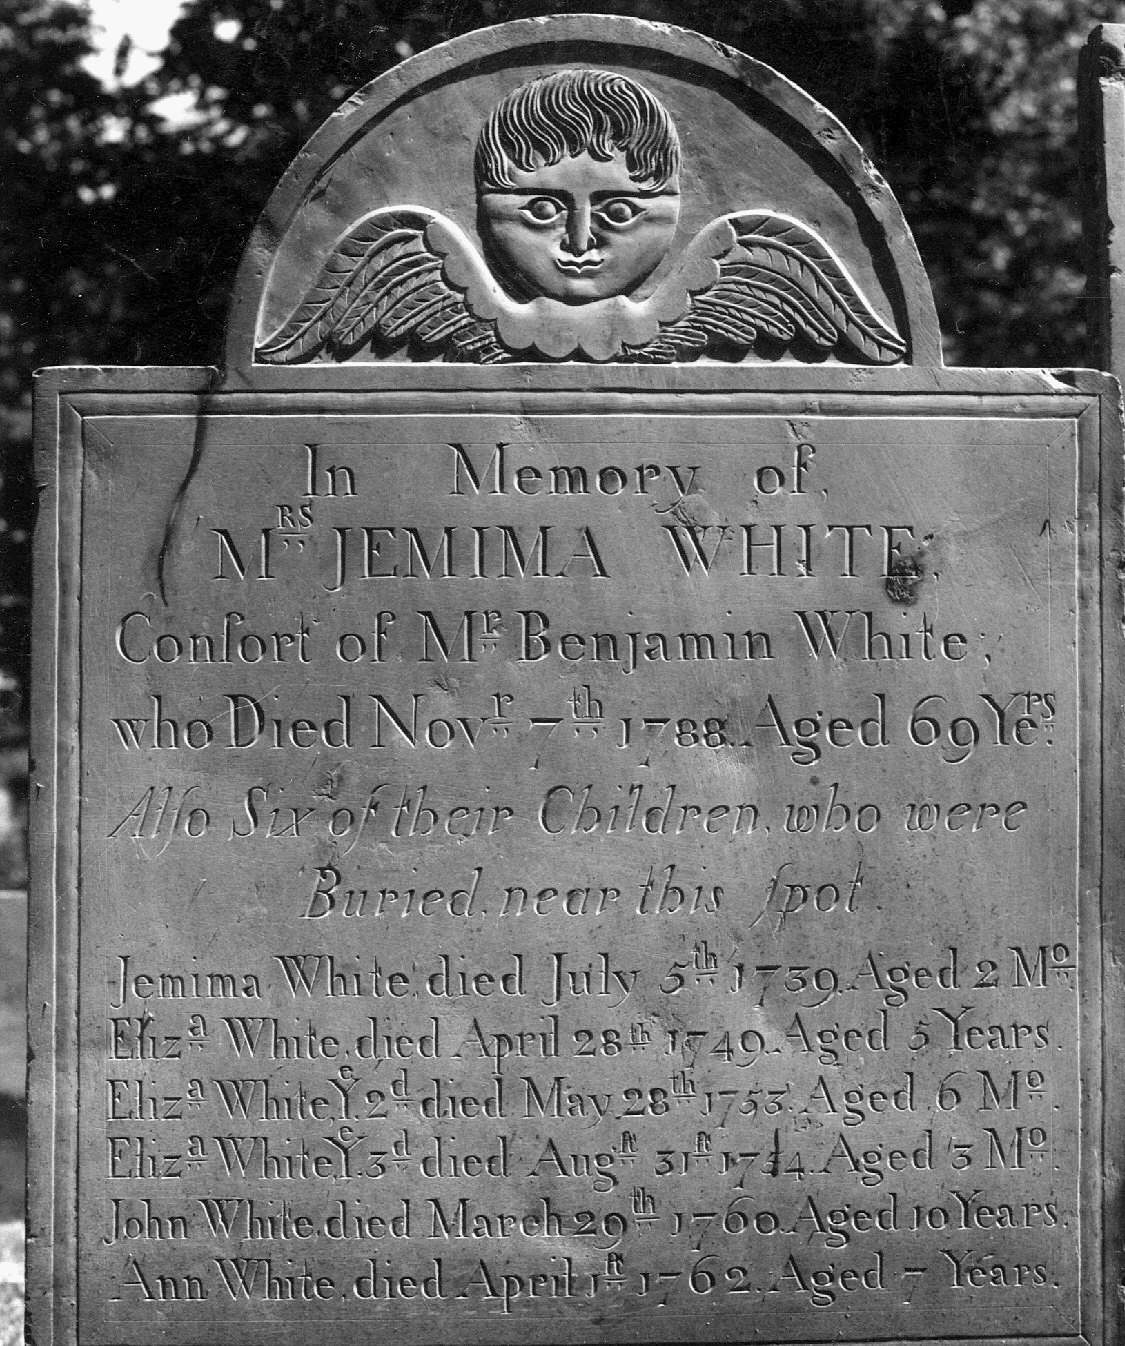 In Memory of,
Mrs JEMIMA WHITE,
Conſort of Mr Benjamin White;
who Died Novr 7th 1788. Aged 69 Yers.
Alſo Six of their Children, who were
Buried, near this ſpot.
Jemima White, died July 5th 1739. Aged 2 Mo
Eliza White, died April 28th 1749. Aged 5 Years.
Eliza White, Ye 2d died May 28th 1753. Aged 6 Mo.
Eliza White, Ye 3d died Augſt 31ſt 1754. Aged 3 Mo.
John White, died March 29th 1760. Aged 10 Years.
Ann White, died April 1ſt 1762. Aged 7 Years.